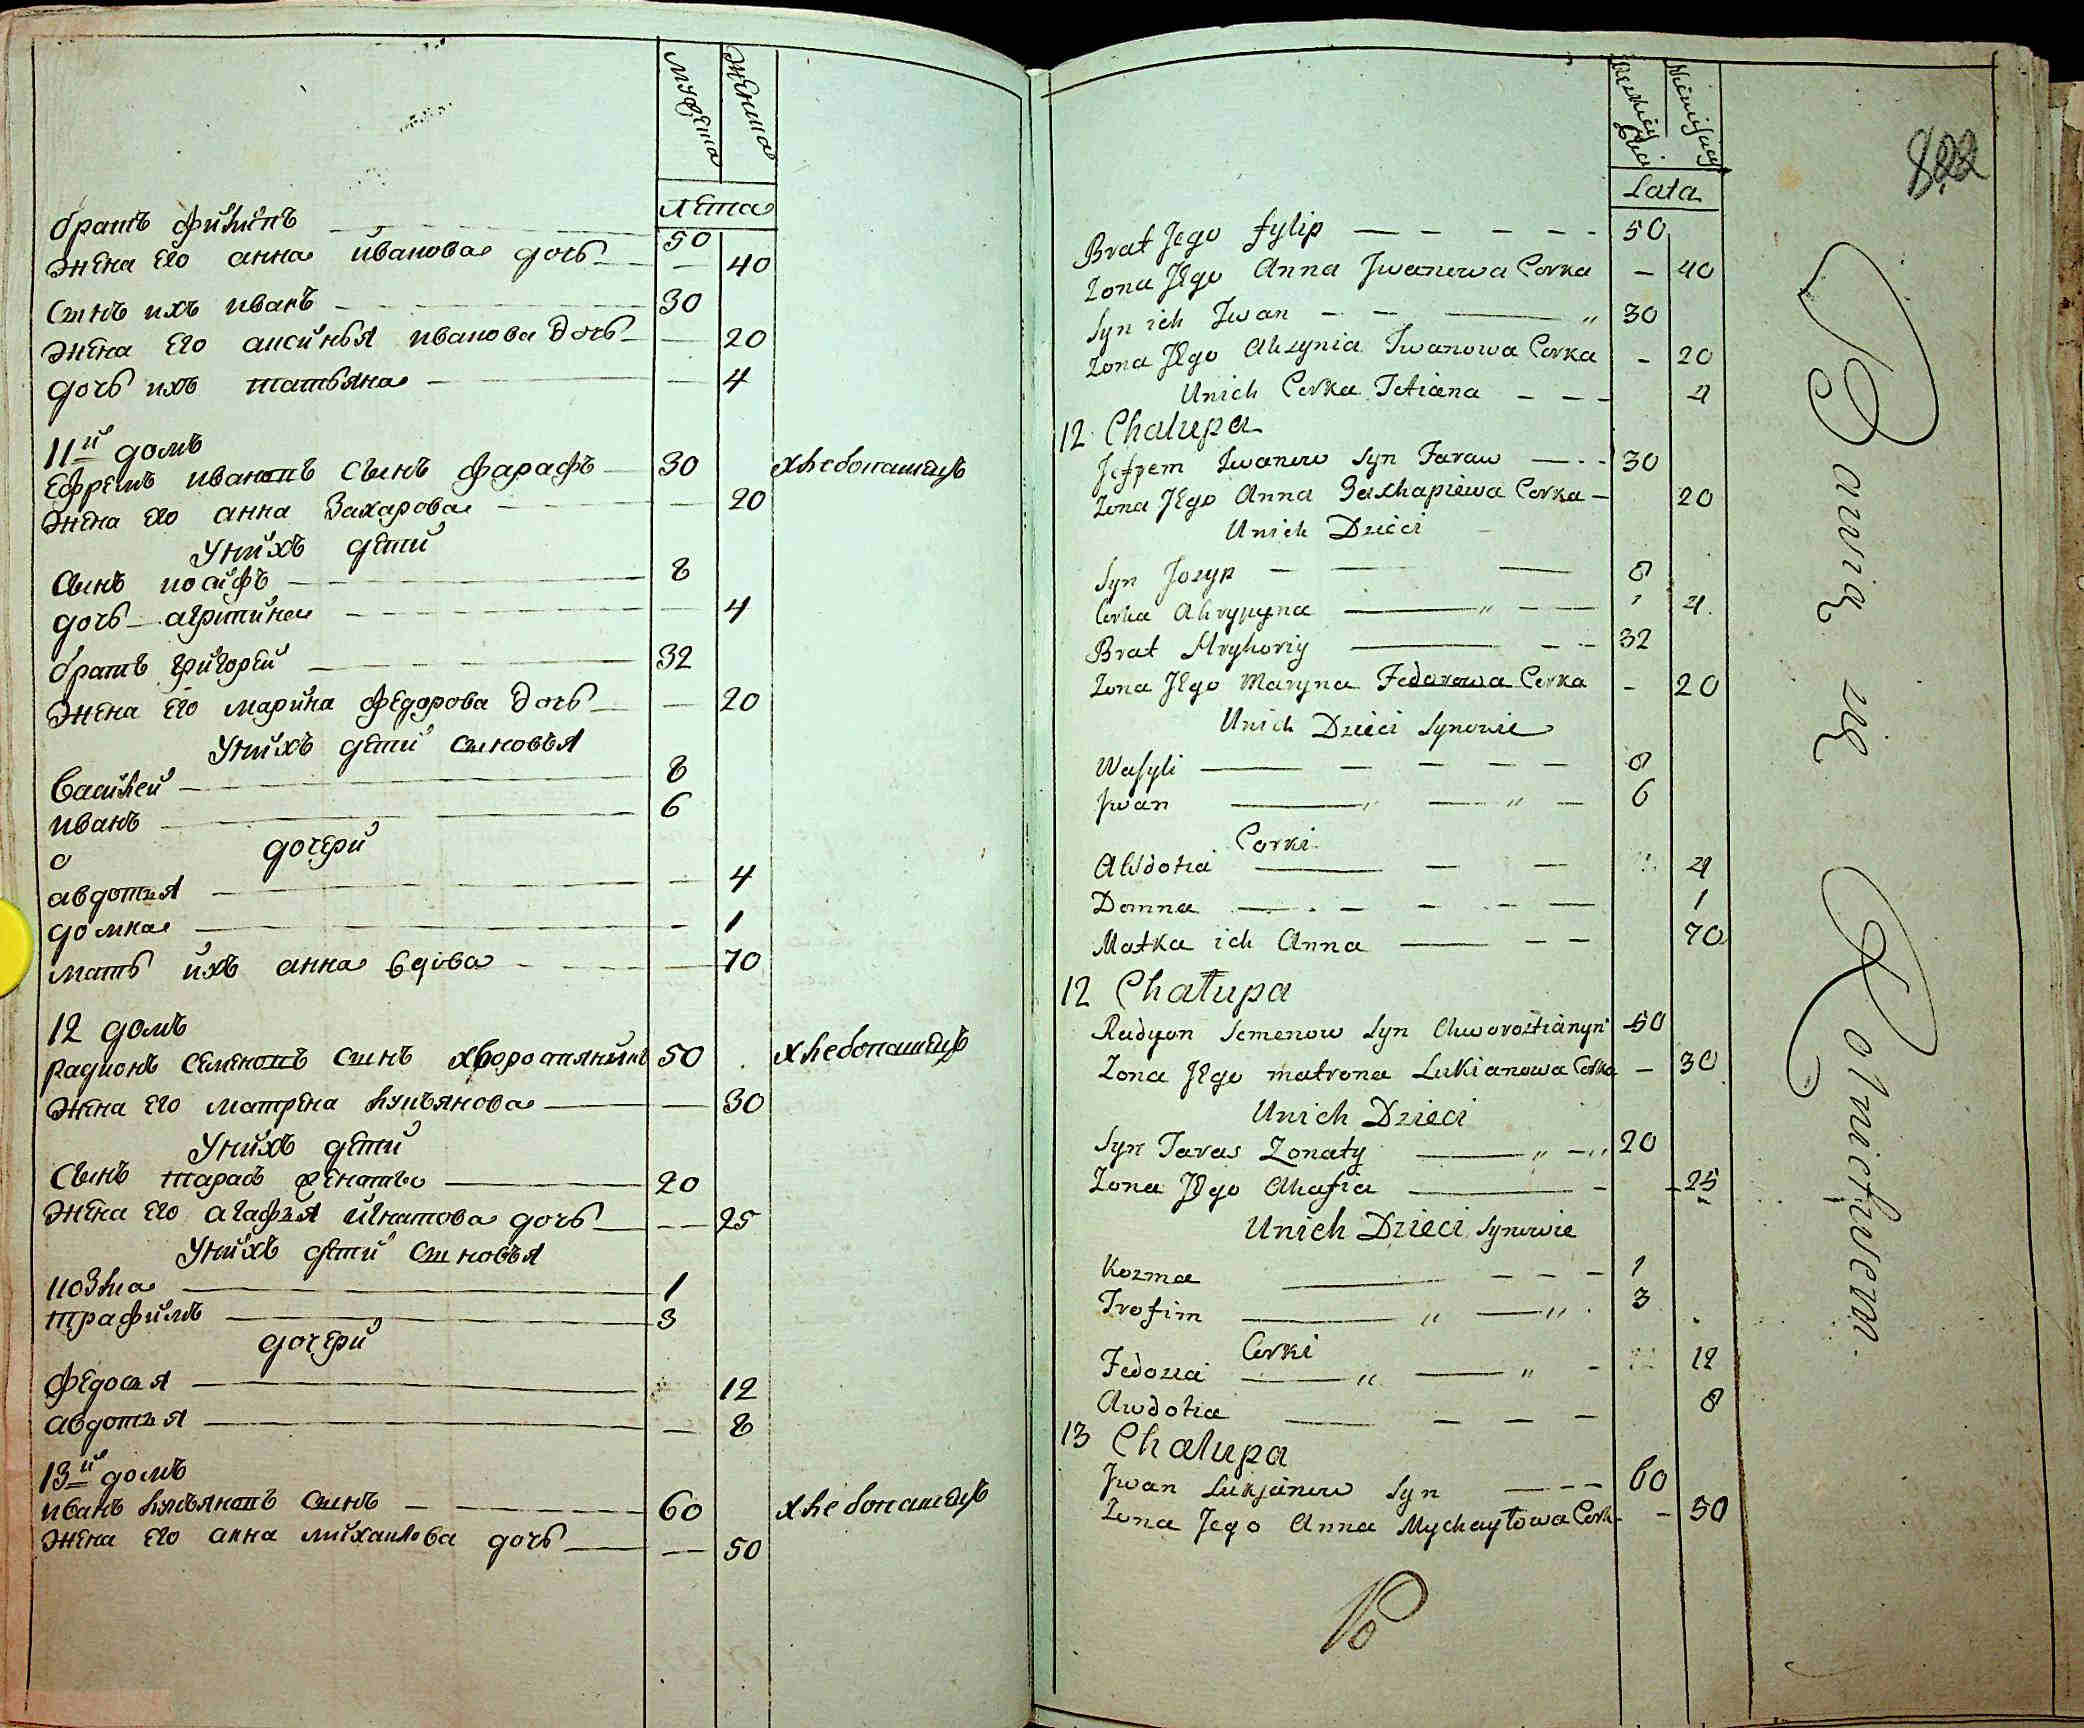 мужеска
женска
лета
братъ филипъ 50
жена его анна иванова дочь 40
сынъ ихъ иванъ 30
жена его аксинья иванова дочь 20
дочь ихъ татьяна 4
11й домъ
ефремъ ивановъ сынъ фарафъ 30 хлебопашецъ
жена его анна захарова 20
у нихъ дети
сынъ иосифъ 8
дочь агрипина 4
братъ григорей 32
жена его марина федорова дочь 20
у нихъ дети сыновья
василей 8
иванъ 6
дочери
авдотья 4
домна 1
мать ихъ анна вдова 70
12 домъ
радионъ семеновъ сынъ хворостянинъ 50 хлебопашецъ
жена его матрена лукъянова 30
у нихъ дети
сынъ тарасъ женатъ 20
жена его агафья игнатова дочь 25
у нихъ дети сыновья
козма 1
трафимъ 3
дочери
федосья 12
авдотья 8
13й домъ
иванъ лукъяновъ сынъ 60 хлебопашецъ
жена его анна михаилова дочь 50
822
Lata
Brat Jego fylip 50
Zona Jego Anna Jwanowa Corka 40
Syn ich Jwan 30
Zona Jego Akzynia Iwanowa Corka 20
Unich Corka Tetiana 4
12 Chalupa
Jefrem Iwanow Syn Faraw 30
Zona Jego Anna Zachapiewa Corka 20
Unich Dzieci
Syn Jozyp 8
Corka Ahrypyna 4
Brat Hryhoriy 32
Zona Jego Maryna Fedorowa Corka 20
Unich Dzieci Synowie
Wasyli 8
Jwan 6
Corki
Awdotia 4
Domna 1
Matka ich Anna 70
12 Chałupa
Radyon Semenow Syn Chworostianyn 50
Zona Jego matrona Lukianowa Corka 30
Unich Dzieci
Syn Taras Zonaty 20
Zona Jego Ahafia 25
Unich Dzieci Synowie
Kozma 1
Trofim 3
Corki
Fedozia 12
Awdotia 8
13 Chalupa
Jwan Lukjanow Syn 60
Zona Jego Anna Mychayłowa Cork 50